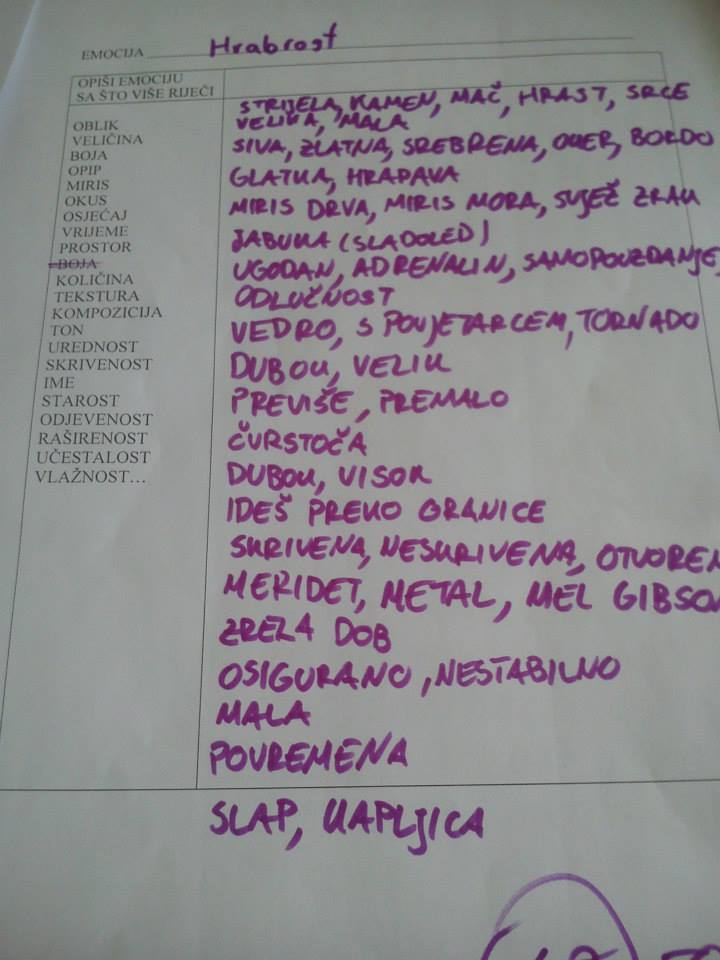 EMOCIJA Hrabrost
OPIŠI EMOCIJU
SA ŠTO VIŠE RIJEČI
OBLIK
VELIČINA
BOJA
OPIP
MIRIS
OKUS
OSJEĆAJ
VRIJEME
PROSTOR
BOJA
KOLIČINA
TEKSTURA
KOMPOZICIJA
TON
UREDNOST
SKRIVENOST
IME
STAROST
ODJEVENOST
RAŠIRENOST
UČESTALOST
VLAŽNOST...
STRIJELA, KAMEN, MAČ, HRAST, SRCE
VELIKA, MALA
SIVA, ZLATNA, SREBRENA, OKER, BORDO
GLATKA, HRAPAVA
MIRIS DRVA, MIRIS MORA, SVJEŽ ZRAK
JABUKA (SLADOLED)
UGODAN, ADRENALIN, SAMOPOUZDANJE,
ODLUČNOST
VEDRO, S POVJETARCEM, TORNADO
DUBOK, VELIK
PREVIŠE, PREMALO
ČVRSTOČA
DUBOK, VISOK
IDEŠ PREKO GRANICE
SKRIVENA, NESKRIVENA, OTVOREN
MERIDET, METAL, MEL GIBSO
ZRELA DOB
OSIGURANO, NESTABILNO
MALA
POVREMENA
SLAP, KAPLJICA